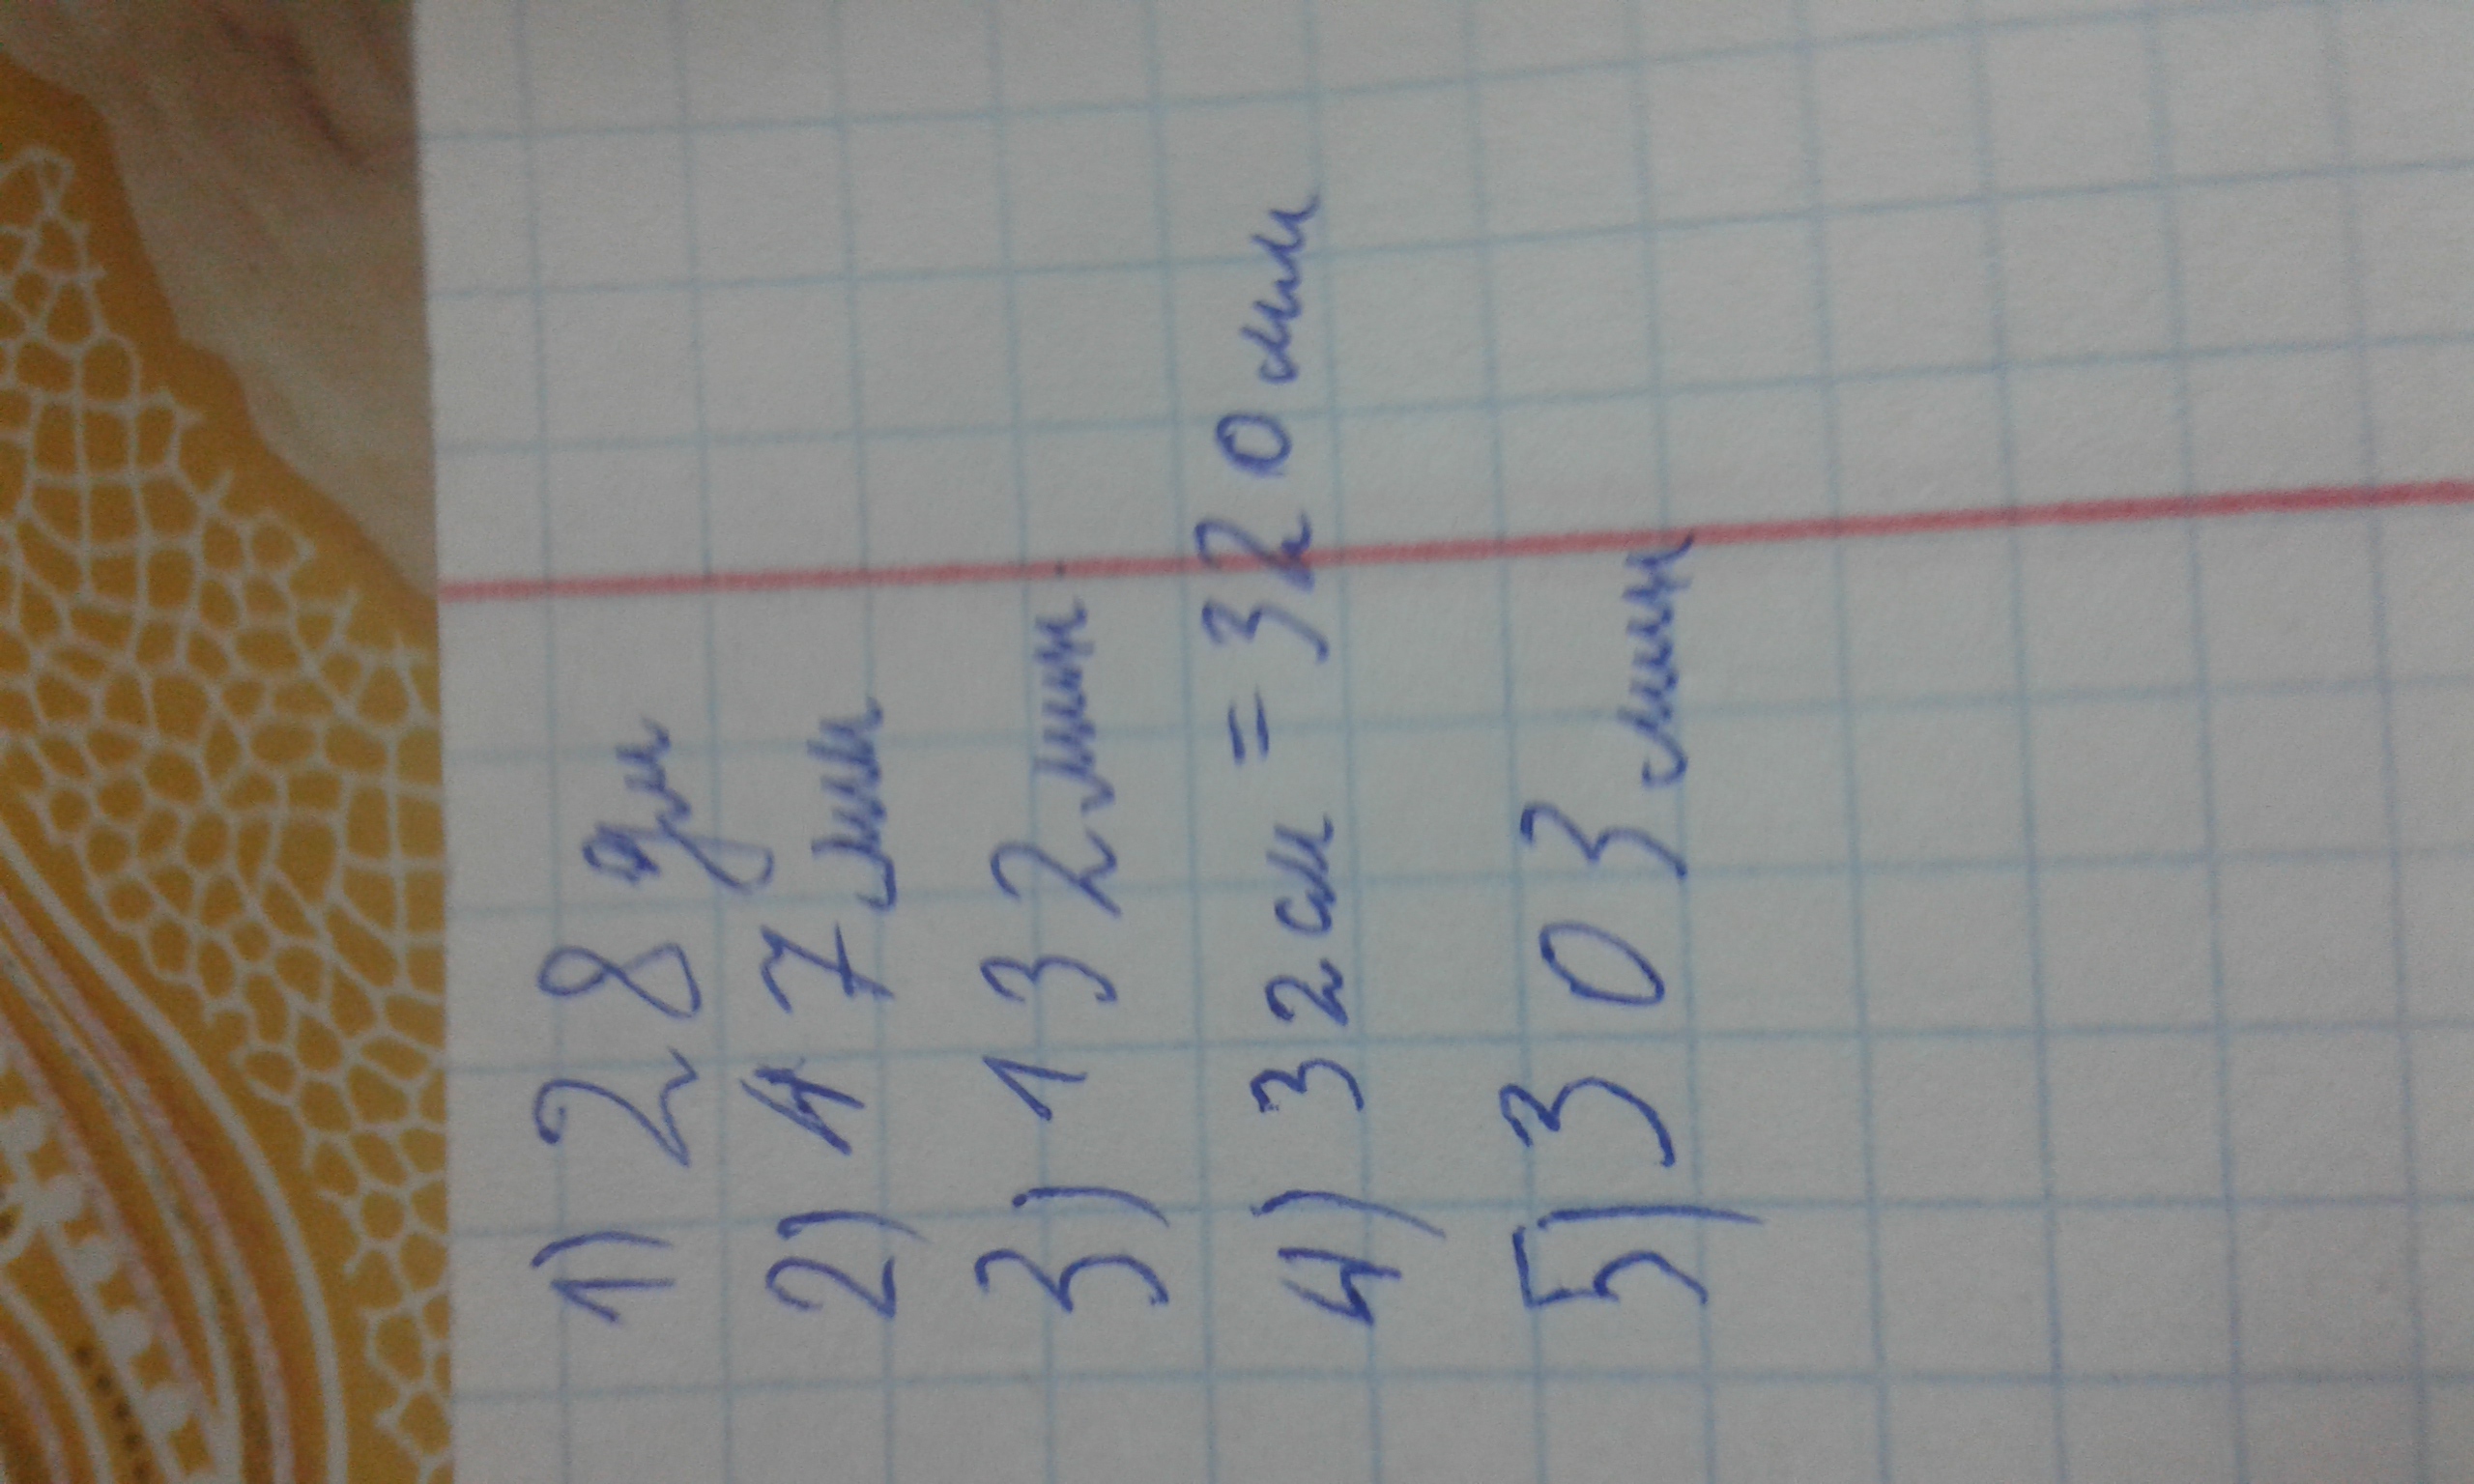 1) 28 дм
2) 47 мм
3) 132 мин
4) 32 см = 320 мм
5) 303 мин